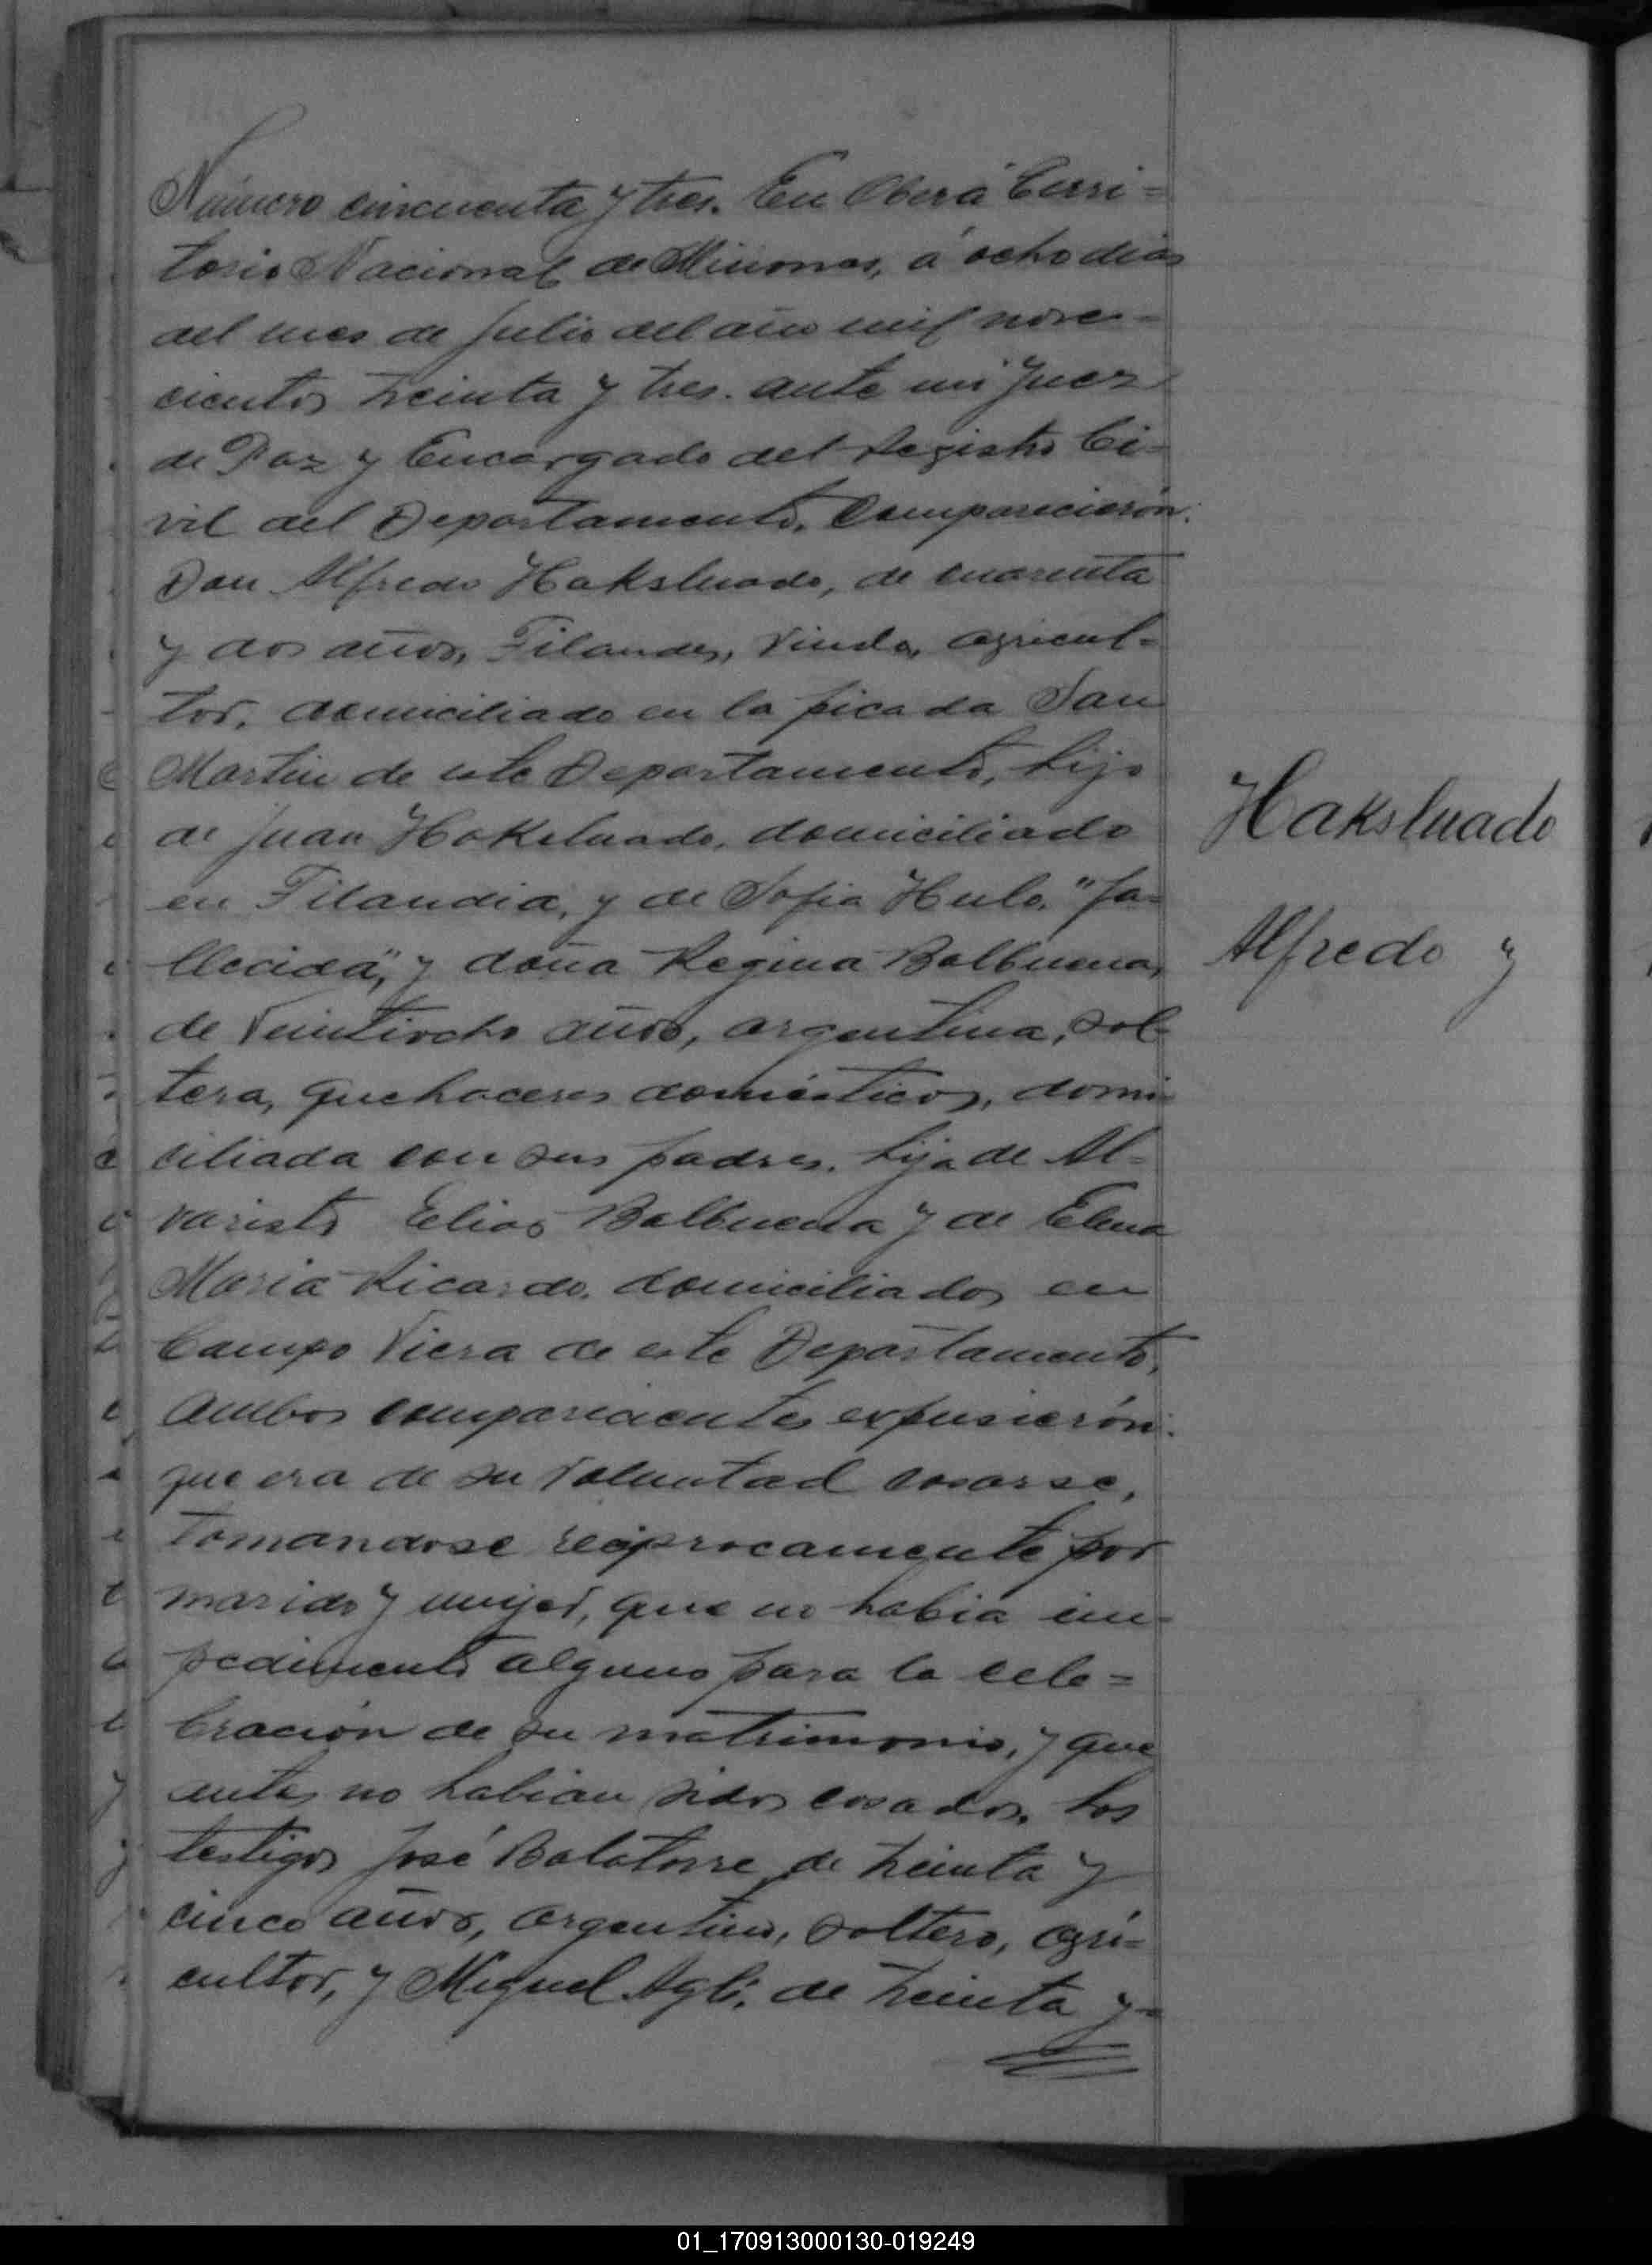 Número cincuenta y tres. En Oberá Terri=
torio Nacional de Misiones, á ocho dias
del mes de Julio del año mil nove=
cientos treinta y tres. ante mi Juez
de Paz y Encargado del Registro Ci=
vil del Departamento, Comparicierón:
Don Alfredo Haksluado, de cuarenta
y dos años, Filandes, Viudo, agricul=
tor, domiciliado en la picada San
Martin de este Departamento, hijo
de Juan Haksluado, domiciliado
en Filandia, y de Sofia Hulo, "fa=
llecida", y doña Regina Balbuena,
de Veintiocho años, argentina, sol=
tera, quehaceres domésticos, domi=
ciliada con sus padres, hija de Al=
varisto Elias Balbuena y de Elena
Maria Ricardo, domiciliados en
Campo Viera de este Departamento,
Ambos compareciéntes expusierón:
que era de su Voluntad casarse,
tomandose reciprocamente por
marido y mujer, que no habia im=
pedimento alguno para la cele=
bración de su matrimonio, y que
antes no habian sidos casados. Los
testigos José Balatorre de treinta y
cinco años, argentino, soltero, agri=
cultor, y Miguel de treinta y=
Haksluado
Alfredo y
01_170913000130-019249